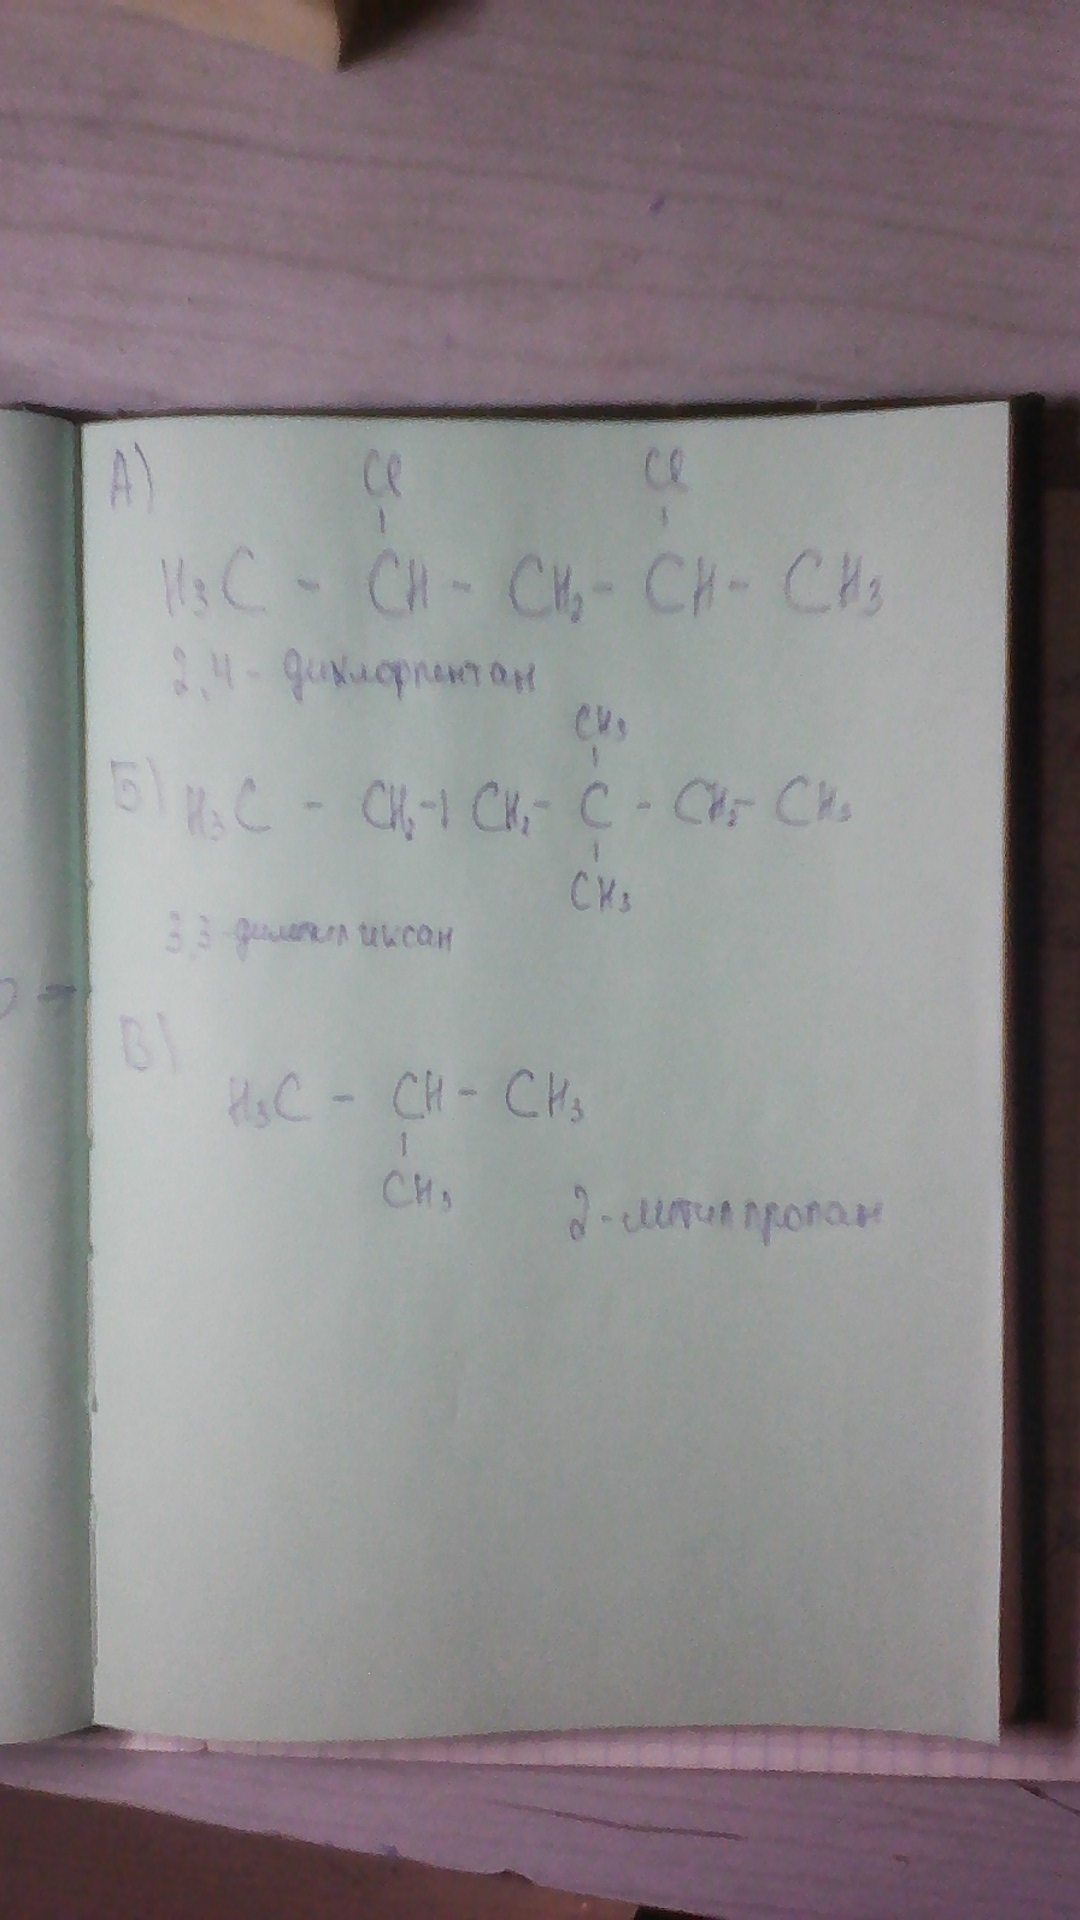 А)
Cl Cl
H₃C - CH - CH₂ - CH - CH₃
2,4 - дихлорпентан
CH₃
Б) H₃C - CH₂ - CH₂ - C - CH₂ - CH₃
CH₃
3,3-диметилгиксан
В)
H₃C - CH - CH₃
CH₃
2-метилпропан